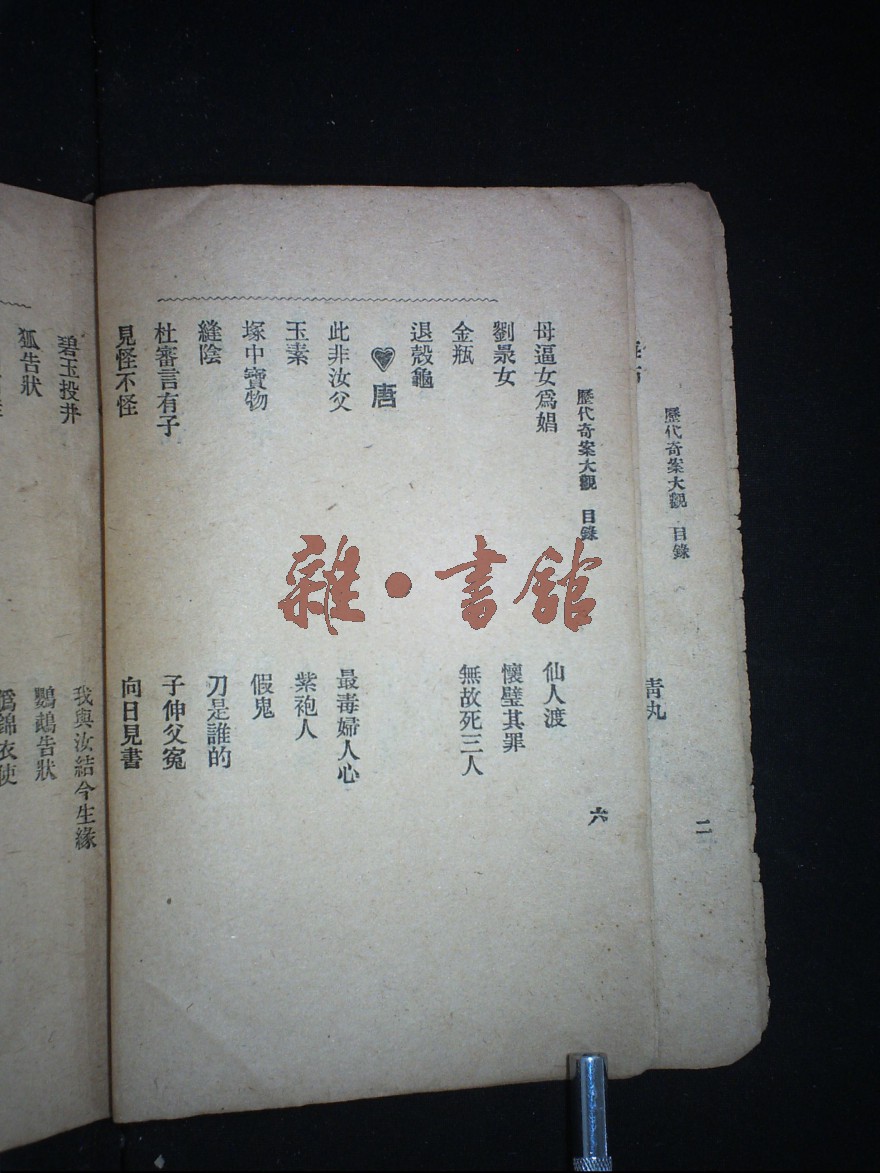 歷代奇案大觀　目錄
二
青丸
歷代奇案大觀　目錄
六
母逼女爲娼
仙人渡
劉景女
懷璧其罪
金瓶
無故死三人
退殼龜
唐
此非汝父
最毒婦人心
玉素
紫袍人
塚中寶物
假鬼
縫陰
刀是誰的
杜審言有子
子伸父冤
見怪不怪
向日見書
碧玉投井
我與汝結今生緣
狐告狀
鸚鵡告狀
爲錦衣使
雜·書館